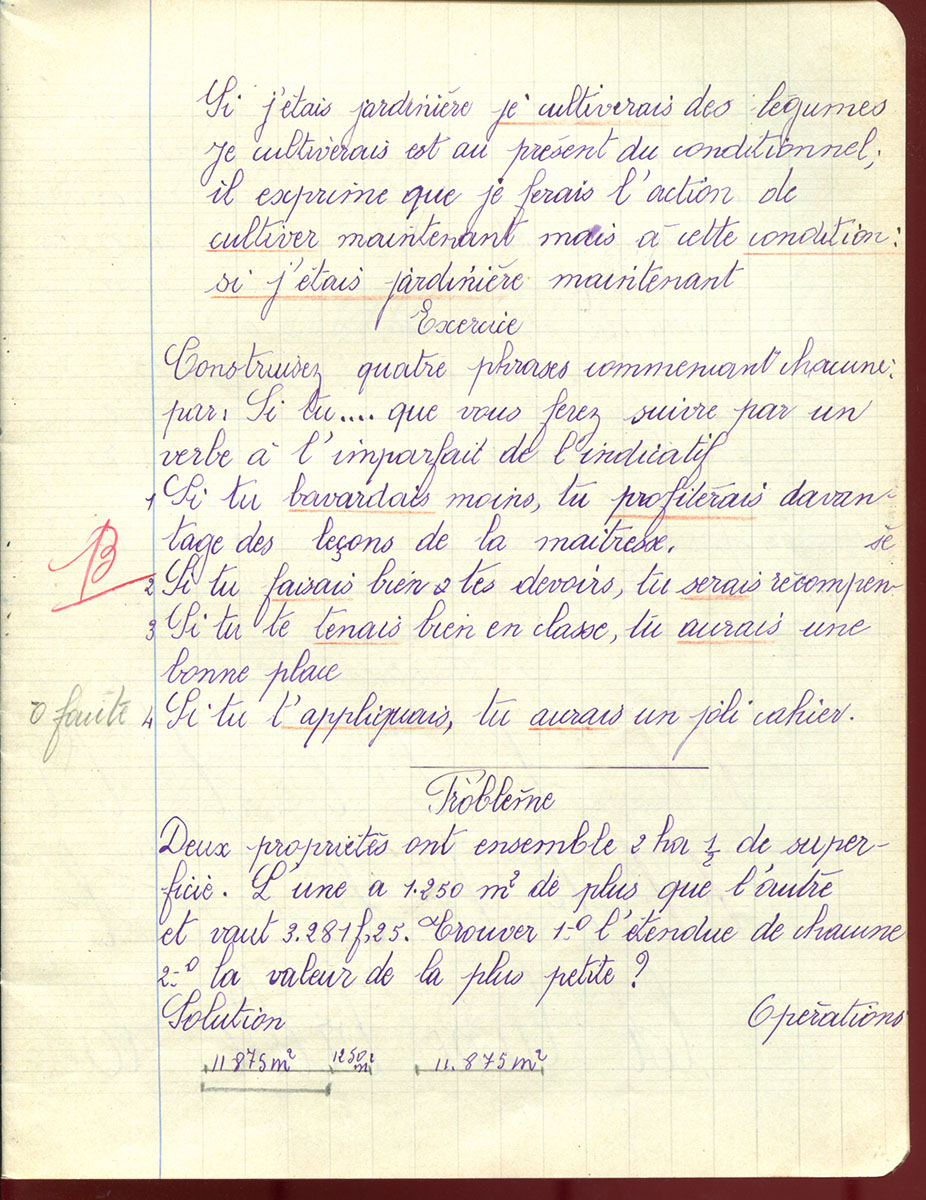 Si j'étais jardinière je cultiverais des légumes
Je cultiverais est au présent du conditionnel;
il exprime que je ferais l'action de
cultiver maintenant mais à cette condition:
si j'étais jardinière maintenant
Exercice
Construisez quatre phrases commencant chacune:
par: Si tu.... que vous ferez suivre par un
verbe à l'imparfait de l'indicatif
1 Si tu bavardais moins, tu profiterais davan-
tage des leçons de la maitresse.
sé
B
2 Si tu faisais bien tes devoirs, tu serais récompen-
3 Si tu te tenais bien en classe, tu aurais une
bonne place
0 faute
4 Si tu t'appliquais, tu aurais un joli cahier.
Problème
Deux propriétés ont ensemble 2 ha 1/2 de super-
ficie. L'une a 1.250 m² de plus que l'autre
et vaut 3.281f,25. Trouver 1-º l'étendue de chacune
2-º la valeur de la plus petite?
Solution Opérations
11875m² 1250 m² 11.875m²